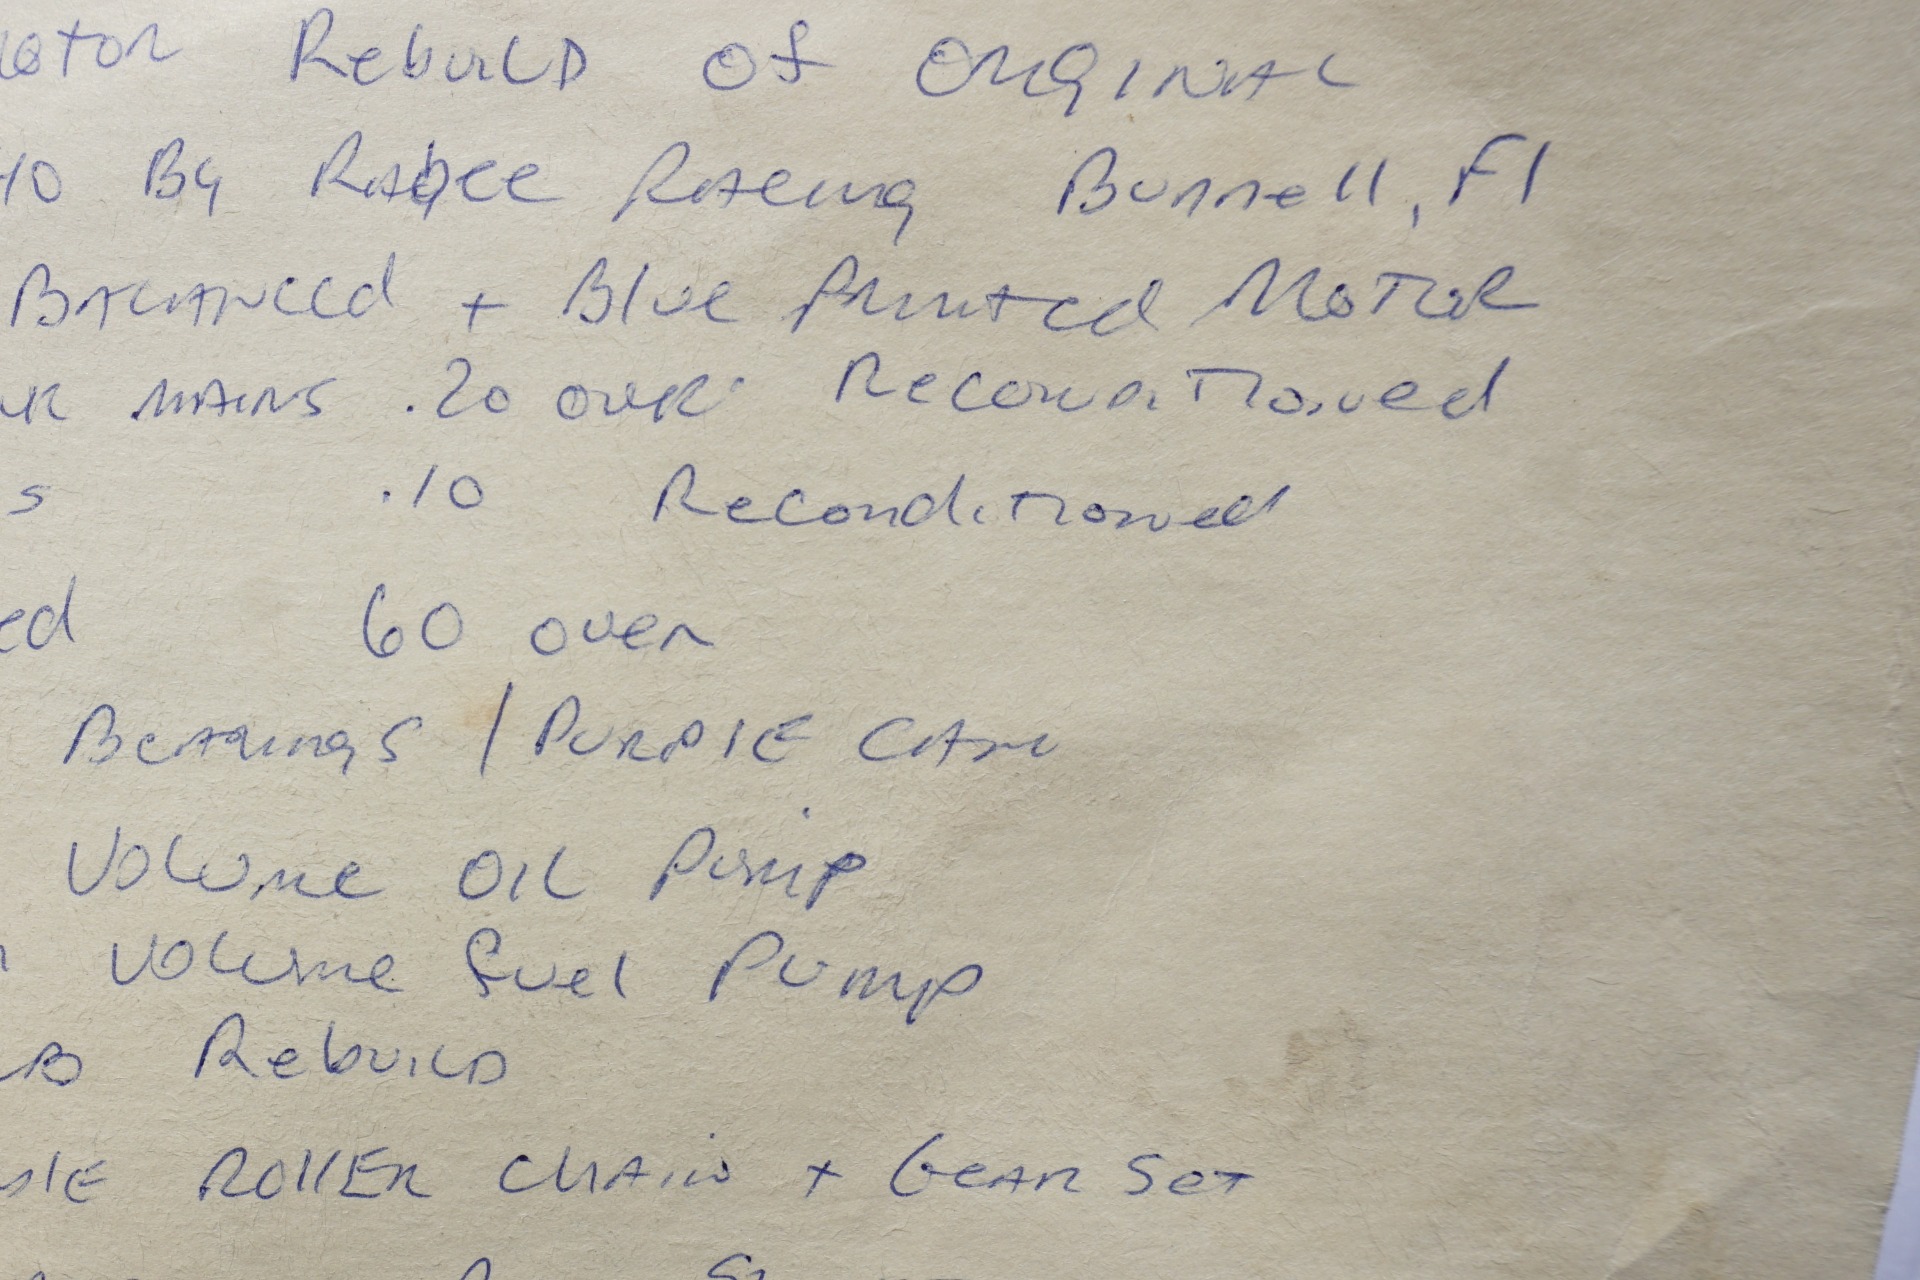 otor Rebuild Of Orginal
40 By Rabee Raceing Bunnell, Fl
Balanced + Blue Printed Motor
mains .20 over Reconditioned
s .10 Reconditioned
ed 60 over
Bearings / Purple Cam
Volume Oil Pump
Volume fuel Pump
Rebuild
Roller Chain + Gear Set